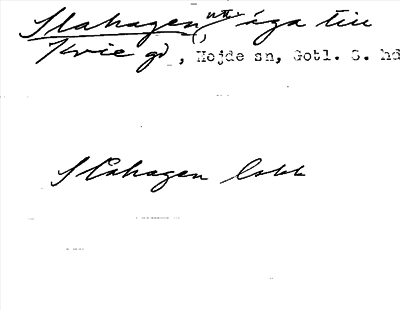 Slahagen, äga till
Kvie gd, Hejde sn, Gotl. S. hd
Slåhagen